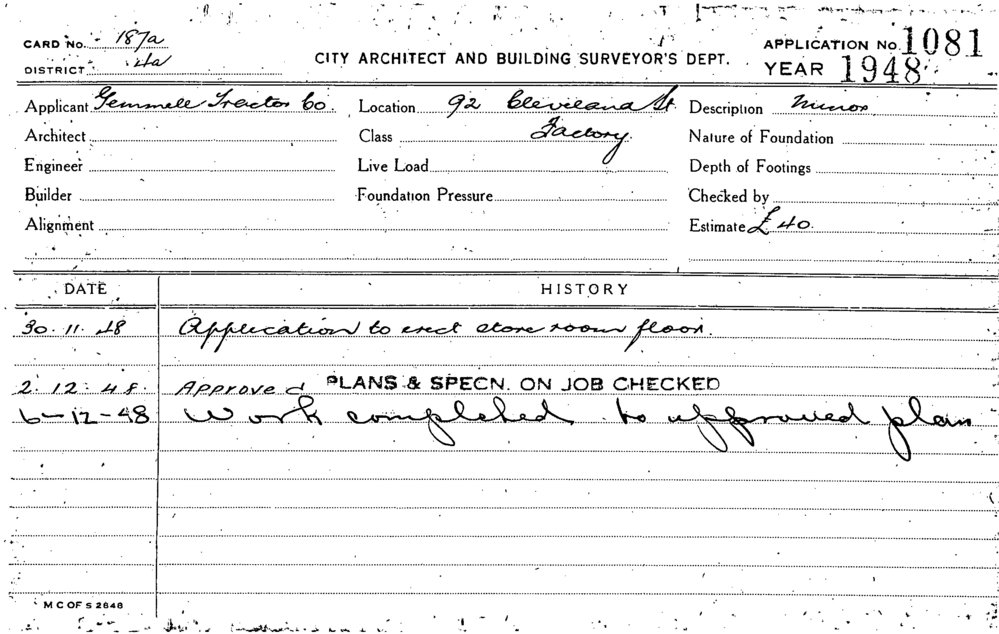 CARD No. 187a
DISTRICT 4a
CITY ARCHITECT AND BUILDING SURVEYOR'S DEPT.
APPLICATION No. 1081
YEAR 1948
Applicant Gemmell Tractor Co Location 92 Cleveland St Description Minor
Architect Class Factory. Nature of Foundation
Engineer Live Load Depth of Footings
Builder Foundation Pressure Checked by
Alignment Estimate £40.
DATE HISTORY
30.11.48 Application to erect store room floor.
2.12.48. Approved PLANS & SPECN. ON JOB CHECKED
6-12-48 Work completed to approved plan
M C OF S 2648